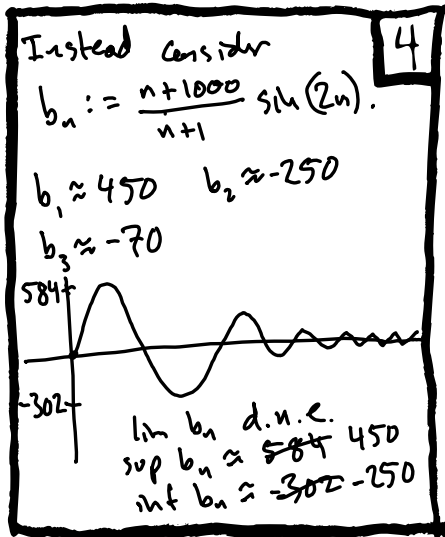 Instead consider
4
b_n := \frac{n+1000}{n+1} sin(2n).
b_1 ≈ 450 b_2 ≈ -250
b_3 ≈ -70
584
-302
lim b_n d.n.e.
sup b_n ≈ ~~584~~ 450
inf b_n ≈ ~~-302~~ -250